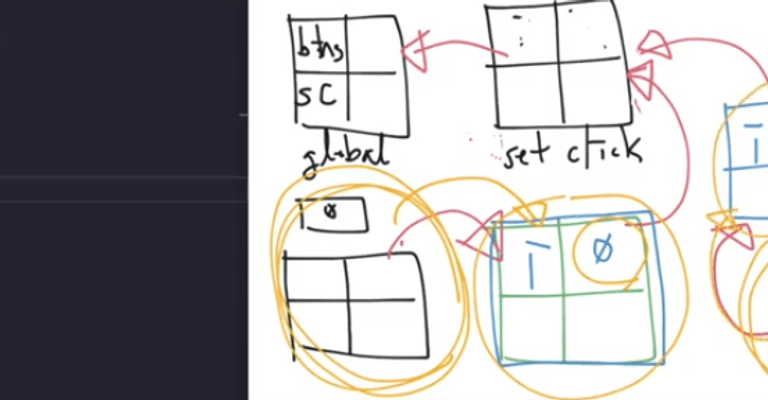 btns
SC
global
set click
i 0
i 0
i